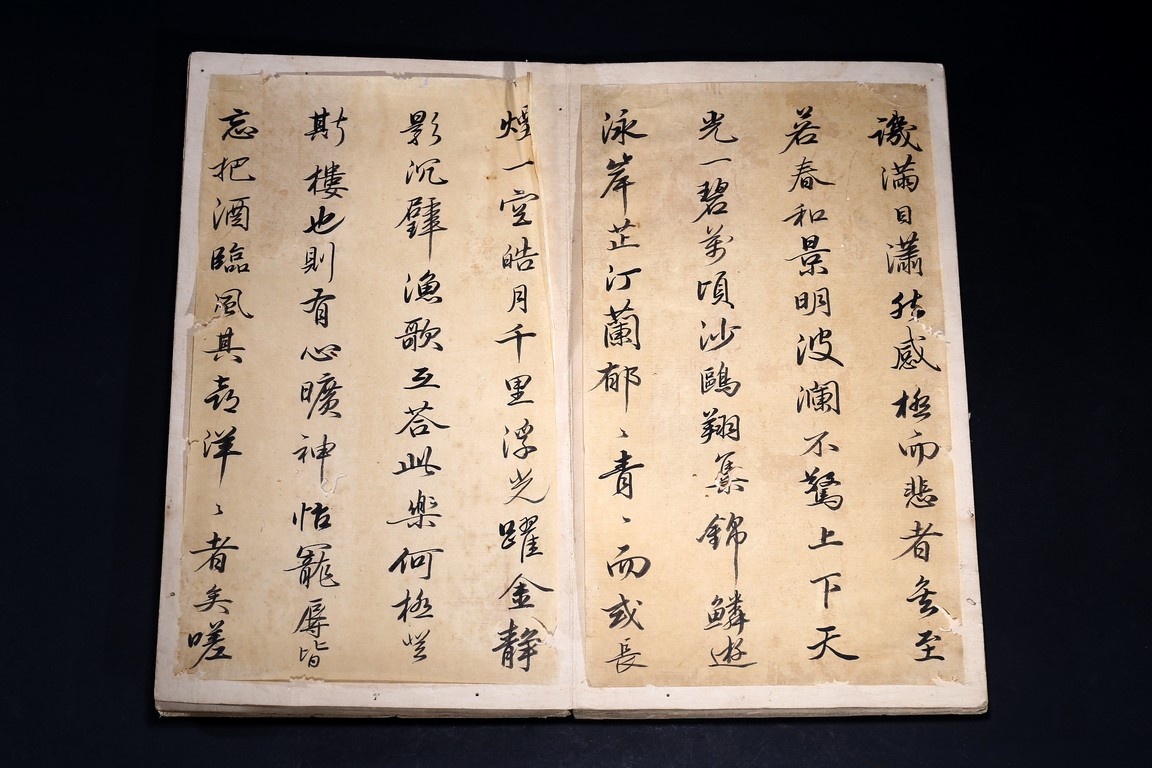 譏滿目瀟然感極而悲者矣至
若春和景明波瀾不驚上下天
光一碧萬頃沙鷗翔集錦鱗遊
泳岸芷汀蘭郁〻青〻而或長
煙一空皓月千里浮光躍金靜
影沉璧漁歌互荅此樂何極登
斯樓也則有心曠神怡寵辱皆
忘把酒臨風其喜洋〻者矣嗟